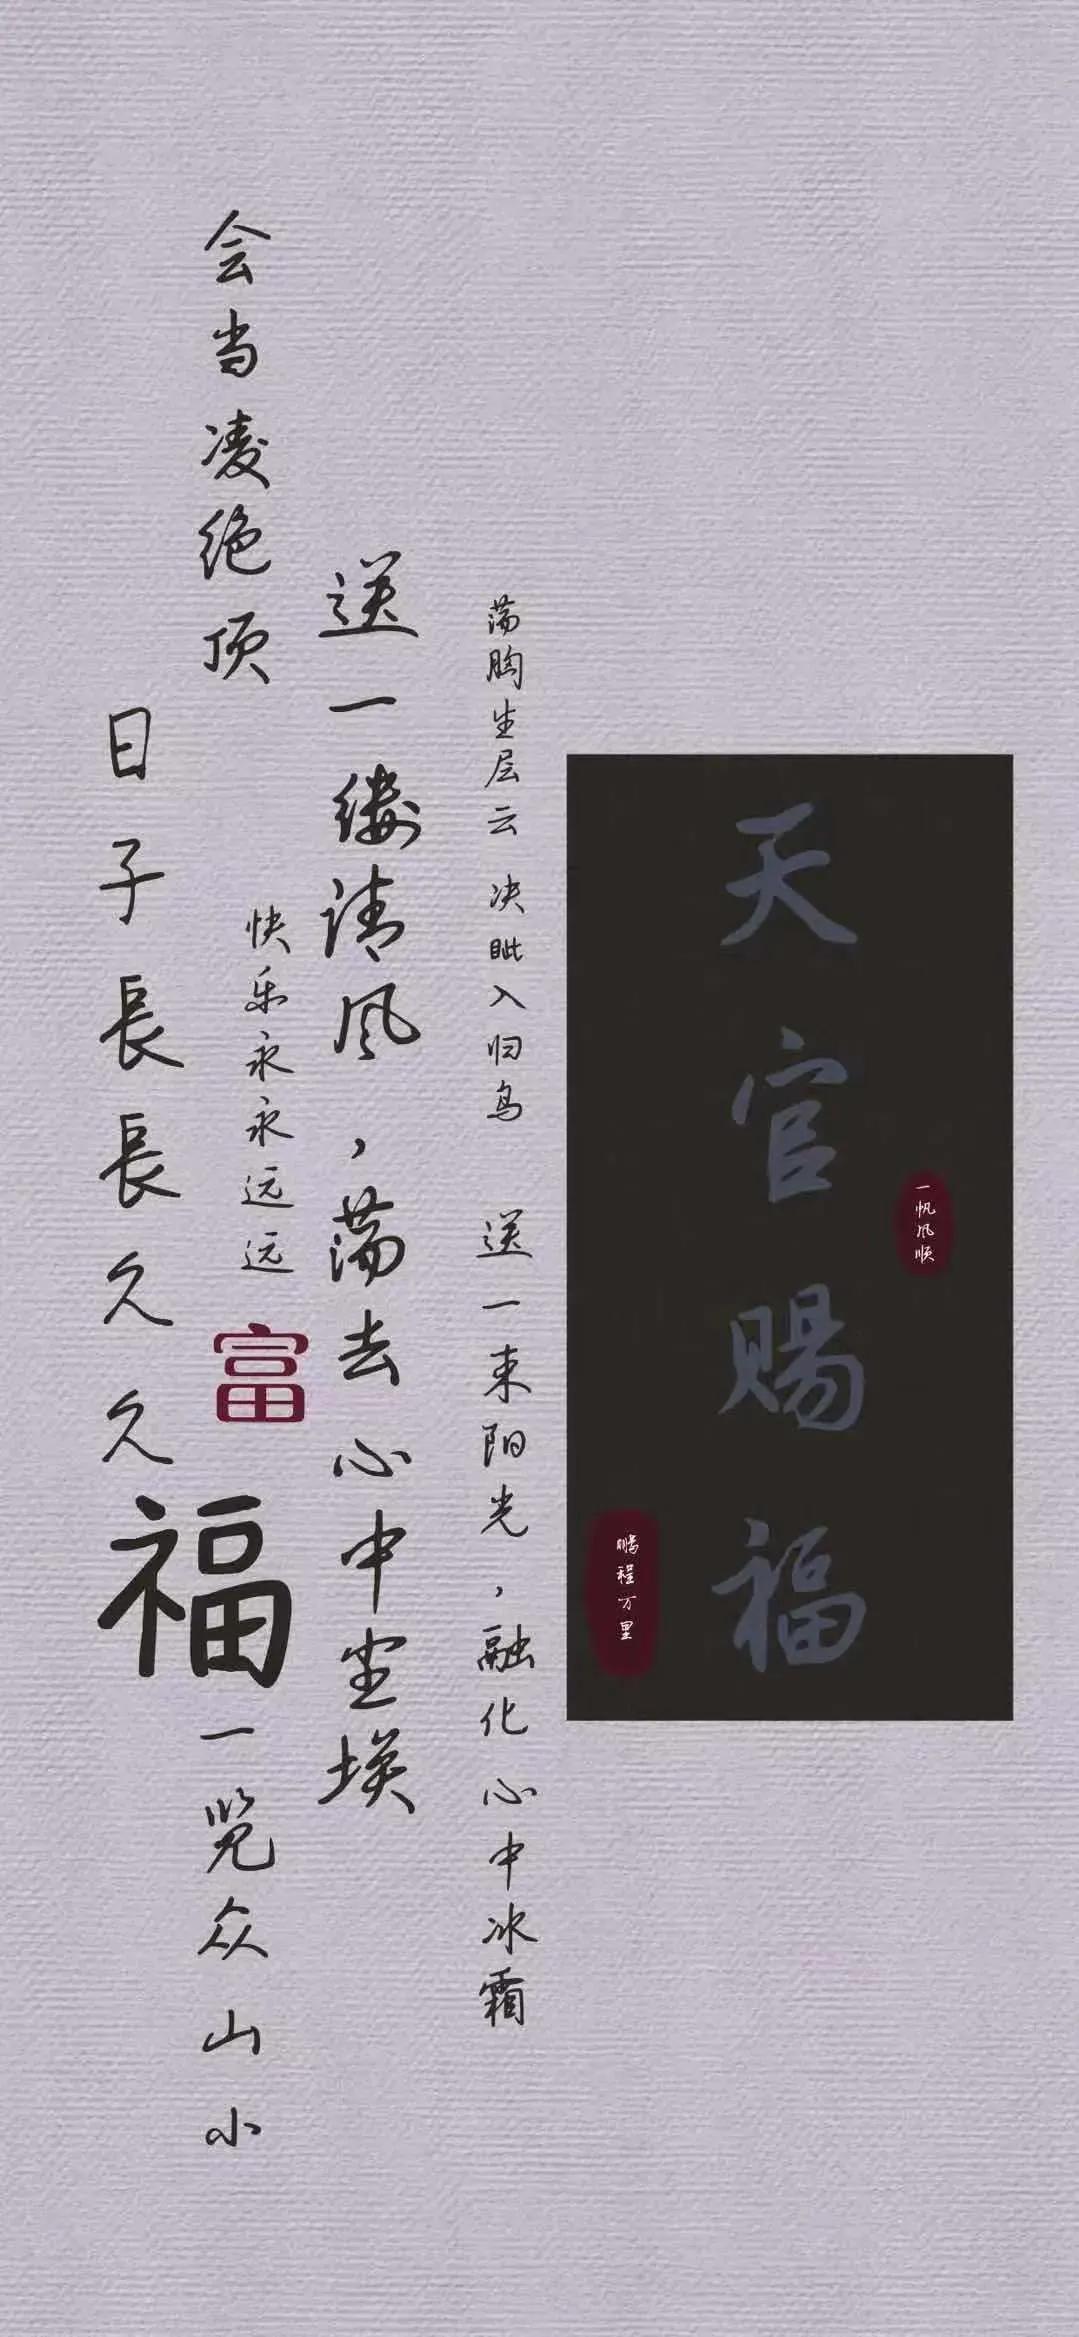 天官赐福
一帆风顺
鹏程万里
荡胸生层云 决眦入归鸟
送一束阳光，融化心中冰霜
送一缕清风，荡去心中尘埃
会当凌绝顶
快乐永永远远
富
日子長長久久
福
一览众山小